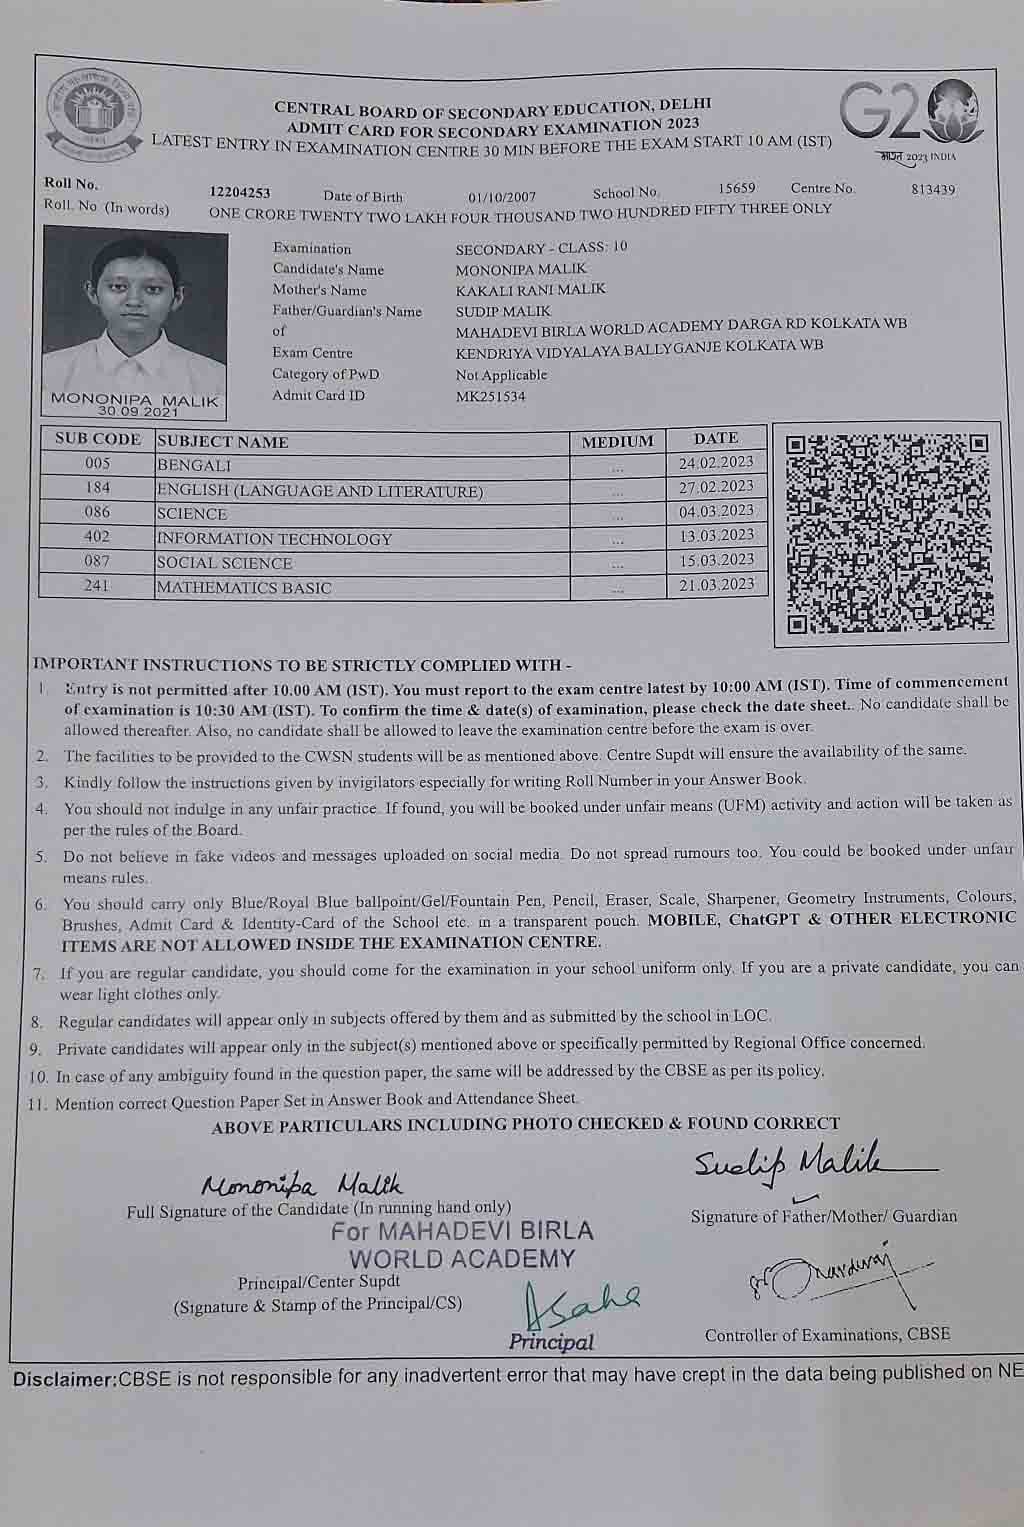 CENTRAL BOARD OF SECONDARY EDUCATION, DELHI
ADMIT CARD FOR SECONDARY EXAMINATION 2023
LATEST ENTRY IN EXAMINATION CENTRE 30 MIN BEFORE THE EXAM START 10 AM (IST)
G20
भारत 2023 INDIA
Roll No. 12204253 Date of Birth 01/10/2007 School No. 15659 Centre No. 813439
Roll. No (In words) ONE CRORE TWENTY TWO LAKH FOUR THOUSAND TWO HUNDRED FIFTY THREE ONLY
Examination SECONDARY - CLASS: 10
Candidate's Name MONONIPA MALIK
Mother's Name KAKALI RANI MALIK
Father/Guardian's Name SUDIP MALIK
of MAHADEVI BIRLA WORLD ACADEMY DARGA RD KOLKATA WB
Exam Centre KENDRIYA VIDYALAYA BALLYGANJE KOLKATA WB
Category of PwD Not Applicable
Admit Card ID MK251534
MONONIPA MALIK
30.09.2021
SUB CODE SUBJECT NAME MEDIUM DATE
005 BENGALI ... 24.02.2023
184 ENGLISH (LANGUAGE AND LITERATURE) ... 27.02.2023
086 SCIENCE ... 04.03.2023
402 INFORMATION TECHNOLOGY ... 13.03.2023
087 SOCIAL SCIENCE ... 15.03.2023
241 MATHEMATICS BASIC ... 21.03.2023
IMPORTANT INSTRUCTIONS TO BE STRICTLY COMPLIED WITH -
1. Entry is not permitted after 10.00 AM (IST). You must report to the exam centre latest by 10:00 AM (IST). Time of commencement
of examination is 10:30 AM (IST). To confirm the time & date(s) of examination, please check the date sheet.. No candidate shall be
allowed thereafter. Also, no candidate shall be allowed to leave the examination centre before the exam is over.
2. The facilities to be provided to the CWSN students will be as mentioned above. Centre Supdt will ensure the availability of the same.
3. Kindly follow the instructions given by invigilators especially for writing Roll Number in your Answer Book.
4. You should not indulge in any unfair practice. If found, you will be booked under unfair means (UFM) activity and action will be taken as
per the rules of the Board.
5. Do not believe in fake videos and messages uploaded on social media. Do not spread rumours too. You could be booked under unfair
means rules.
6. You should carry only Blue/Royal Blue ballpoint/Gel/Fountain Pen, Pencil, Eraser, Scale, Sharpener, Geometry Instruments, Colours,
Brushes, Admit Card & Identity-Card of the School etc. in a transparent pouch. MOBILE, ChatGPT & OTHER ELECTRONIC
ITEMS ARE NOT ALLOWED INSIDE THE EXAMINATION CENTRE.
7. If you are regular candidate, you should come for the examination in your school uniform only. If you are a private candidate, you can
wear light clothes only.
8. Regular candidates will appear only in subjects offered by them and as submitted by the school in LOC.
9. Private candidates will appear only in the subject(s) mentioned above or specifically permitted by Regional Office concerned.
10. In case of any ambiguity found in the question paper, the same will be addressed by the CBSE as per its policy.
11. Mention correct Question Paper Set in Answer Book and Attendance Sheet.
ABOVE PARTICULARS INCLUDING PHOTO CHECKED & FOUND CORRECT
Mononipa Malik
Sudip Malik
Full Signature of the Candidate (In running hand only)
Signature of Father/Mother/ Guardian
For MAHADEVI BIRLA
WORLD ACADEMY
Principal/Center Supdt
(Signature & Stamp of the Principal/CS)
ASaha
Principal
Controller of Examinations, CBSE
Disclaimer:CBSE is not responsible for any inadvertent error that may have crept in the data being published on NE